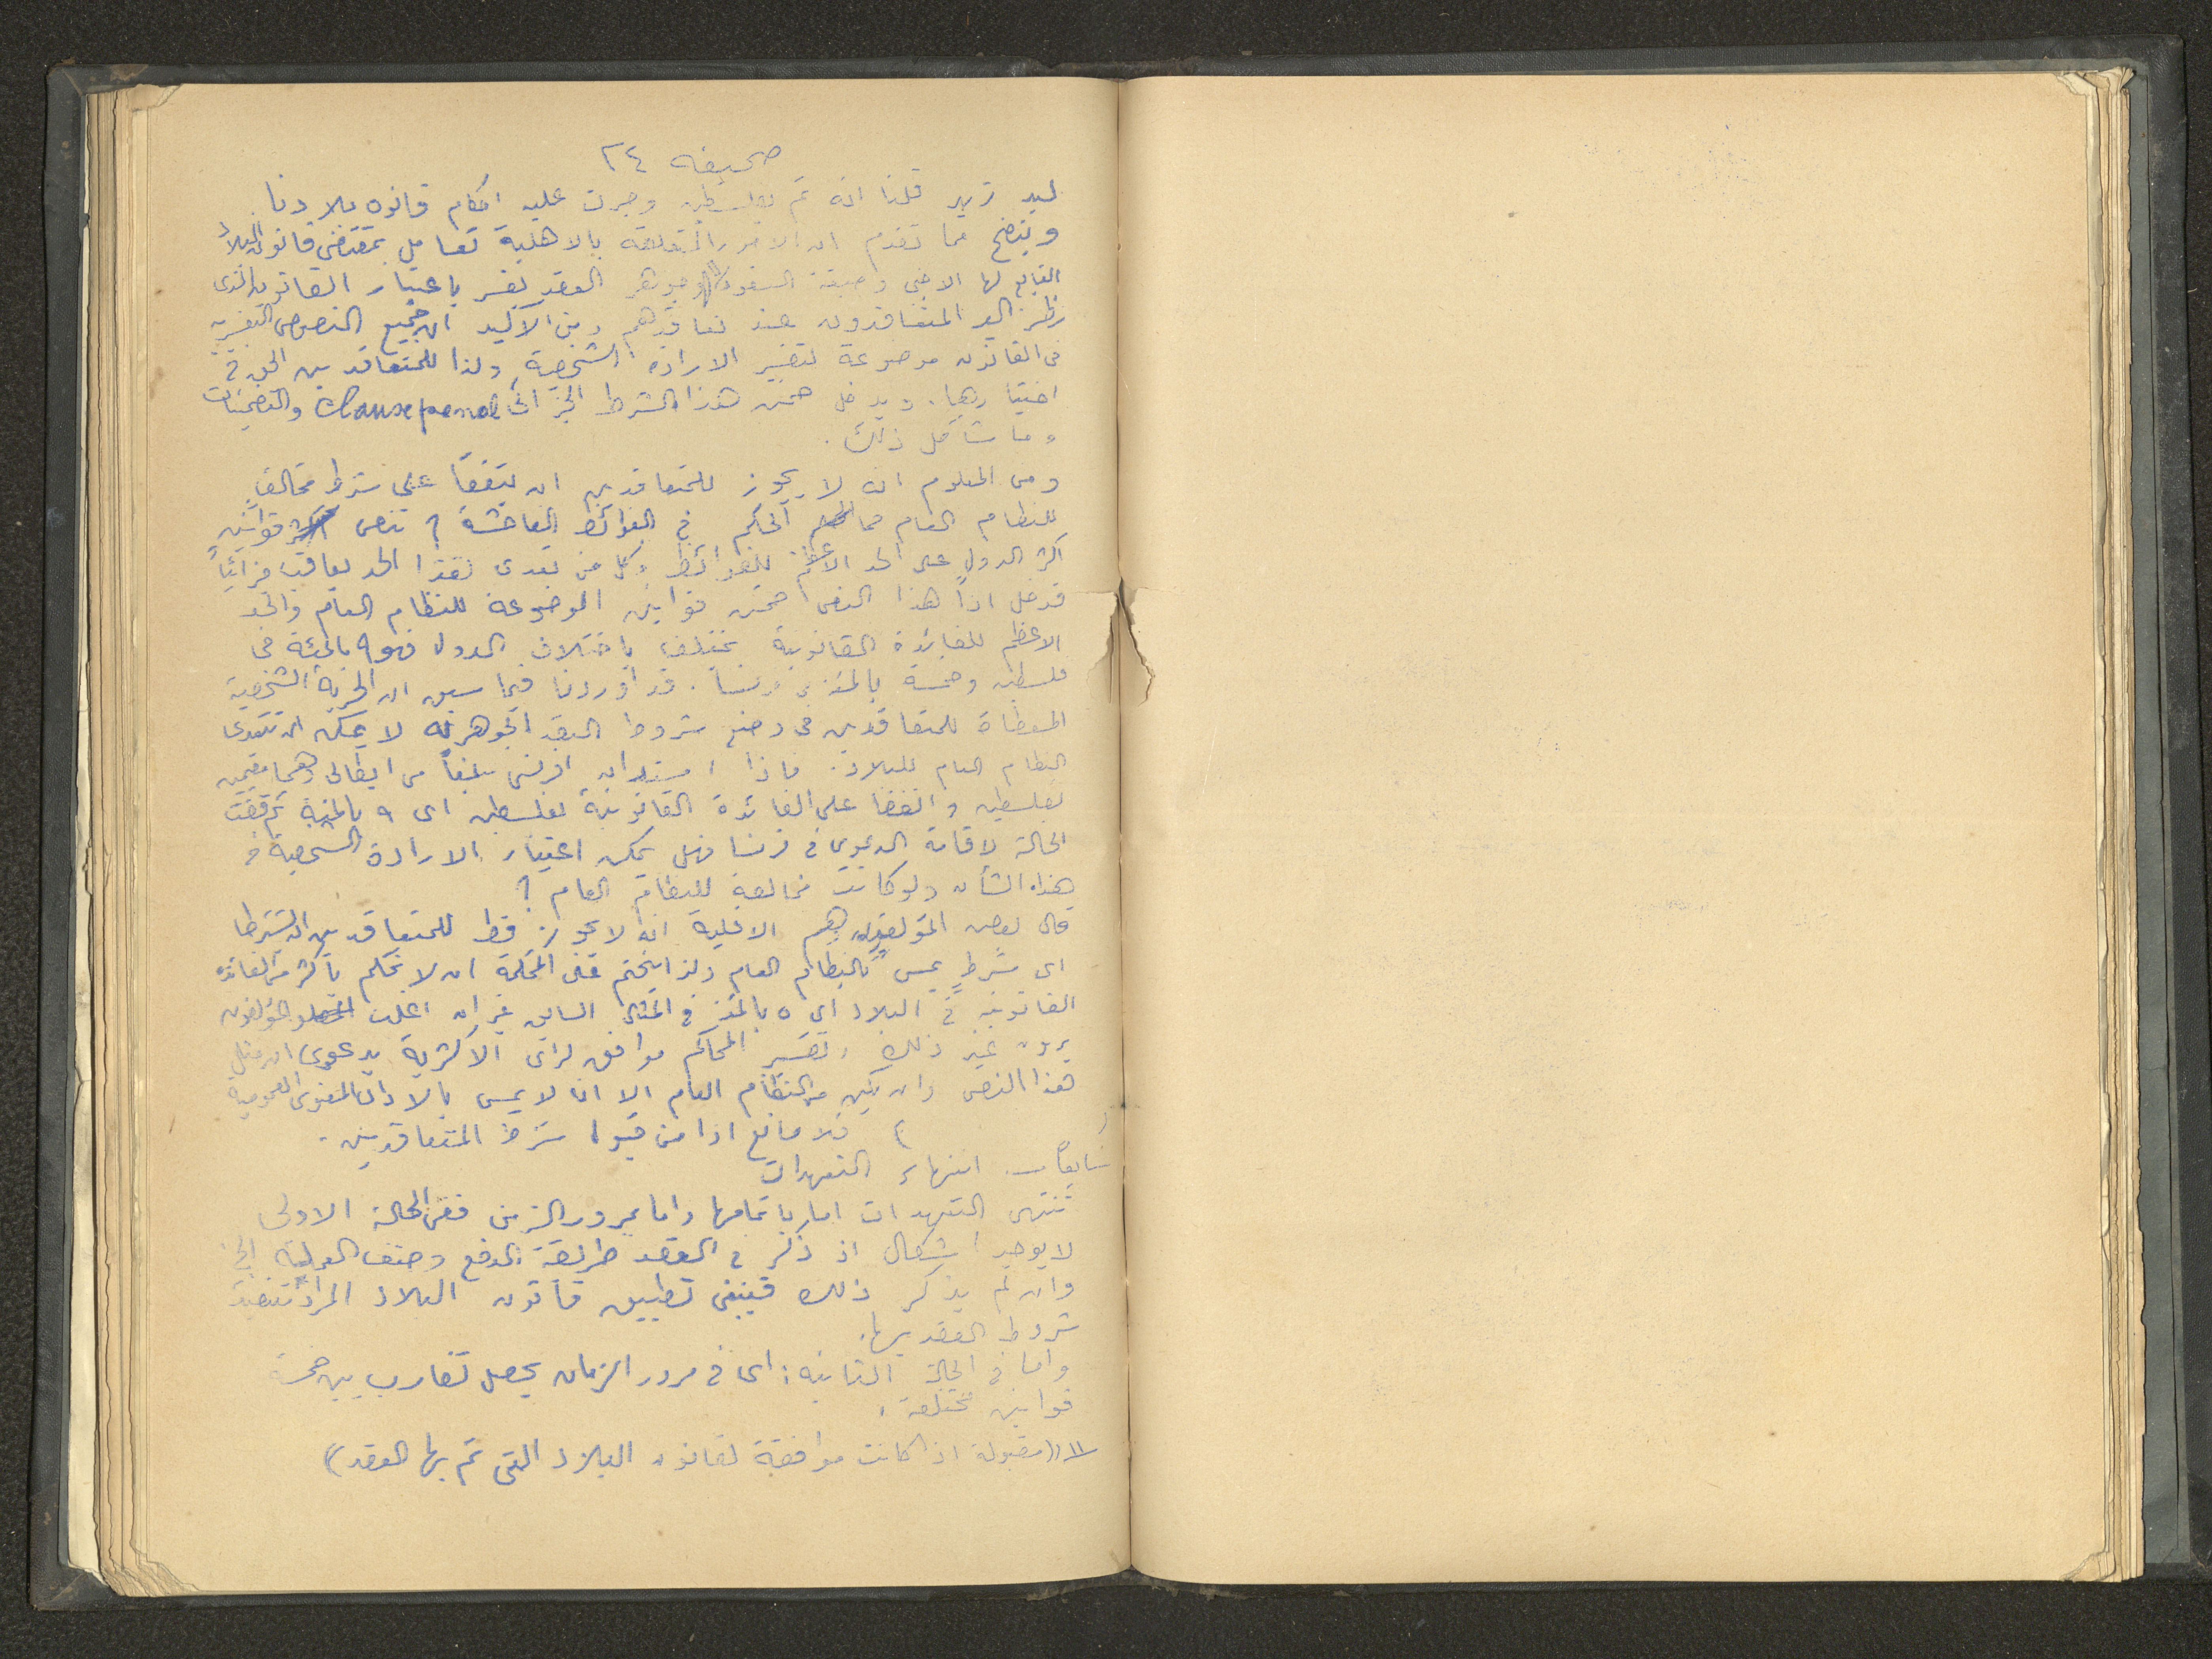 صحيفه ٢٤
ليد زيد قلنا انه تم بفلسطين وجرت عليه احكام قانون بلادنا
ويتضح مما تقدم ان الامور المتعلقة بالاهلية تعامل بمقتضى قانون البلاد
التابع لها الاجنبي وصيغة العقود (١) وجوهر العقد يفسر باعتبار القانون الذي
نظر اليه المتعاقدون عند تعاقدهم ومن الاكيد ان جميع النصوص التفسيرية
في القانون موضوعة لتفسير الارادة الشخصية، ولذا للمتعاقدين الحق في
اختيارهما. ويدخل ضمن هذا الشرط الجزائي Clause penal والتضمينات
وما شاكل ذلك.
ومن المعلوم انه لا يجوز للمتعاقدين ان يتفقا على شرط مخالف
للنظام العام فما الحكم في الفوائظ الفاحشة؟ تنص قوانين
اكثر الدول على الحد الاعظم للفوائظ وكل من تعدى هذا الحد يعاقب جزائياً
فدخل اذاً هذا النص ضمن قوانين الموضوعة للنظام العام والحد
الاعظم للفايدة القانونية يختلف باختلاف الدول فهو ٩ بالمئة في
فلسطين وخمسة بالمئة في فرنسا. قد اوردنا فيما سبق ان الحرية الشخصية
المعطاة للمتعاقدين في وضع شروط العقد الجوهرية لا يمكن ان تتعدى
النظام العام للبلاد. فاذا استدان افرنسي مبلغاً من ايطالي وهما مقيمين
بفلسطين واتفقا على الفائدة القانونية بفلسطين اى ٩ بالمئة ثم قضت
الحالة لاقامة الدعوى في فرنسا فهل يمكن اعتبار الارادة الشخصية في
هذا الشأن ولو كانت مخالفة للنظام العام؟
قال بعض المؤلفين وهم الاقلية انه لا يجوز قط للمتعاقدين ان يشترطا
اى شرط يمس بالنظام العام ولذا يتحتم على المحكمة ان لا تحكم باكثر من الفائدة
القانونية في البلاد اى ٥ بالمئة في المثال السابق غير ان اغلب المؤلفون
يرون غير ذلك وتفسير المحاكم موافق لرأى الاكثرية بدعوى ان مثل
هذا النص وان يكن من النظام العام الا انه لا يمس بالاداب العمومية
فلا مانع اذا من قبول شرط المتعاقدين.
سابعاً ـ انتهاء التعهدات
تنتهى التعهدات اما باتمامها واما بمرور الزمن ففي الحالة الاولى
لا يوجد اشكال اذ ذكر في العقد طريقة الدفع وصنف العملة الخ
وان لم يذكر ذلك فينبغى تطبيق قانون البلاد المراد تنفيذ
شروط العقد بها.
واما في الحالة الثانيه: اى في مرور الزمان يحصل تضارب بين خمسة
قوانين مختلفة.
(١) ((مقبولة اذا كانت موافقة لقانون البلاد التى تم بها العقد))